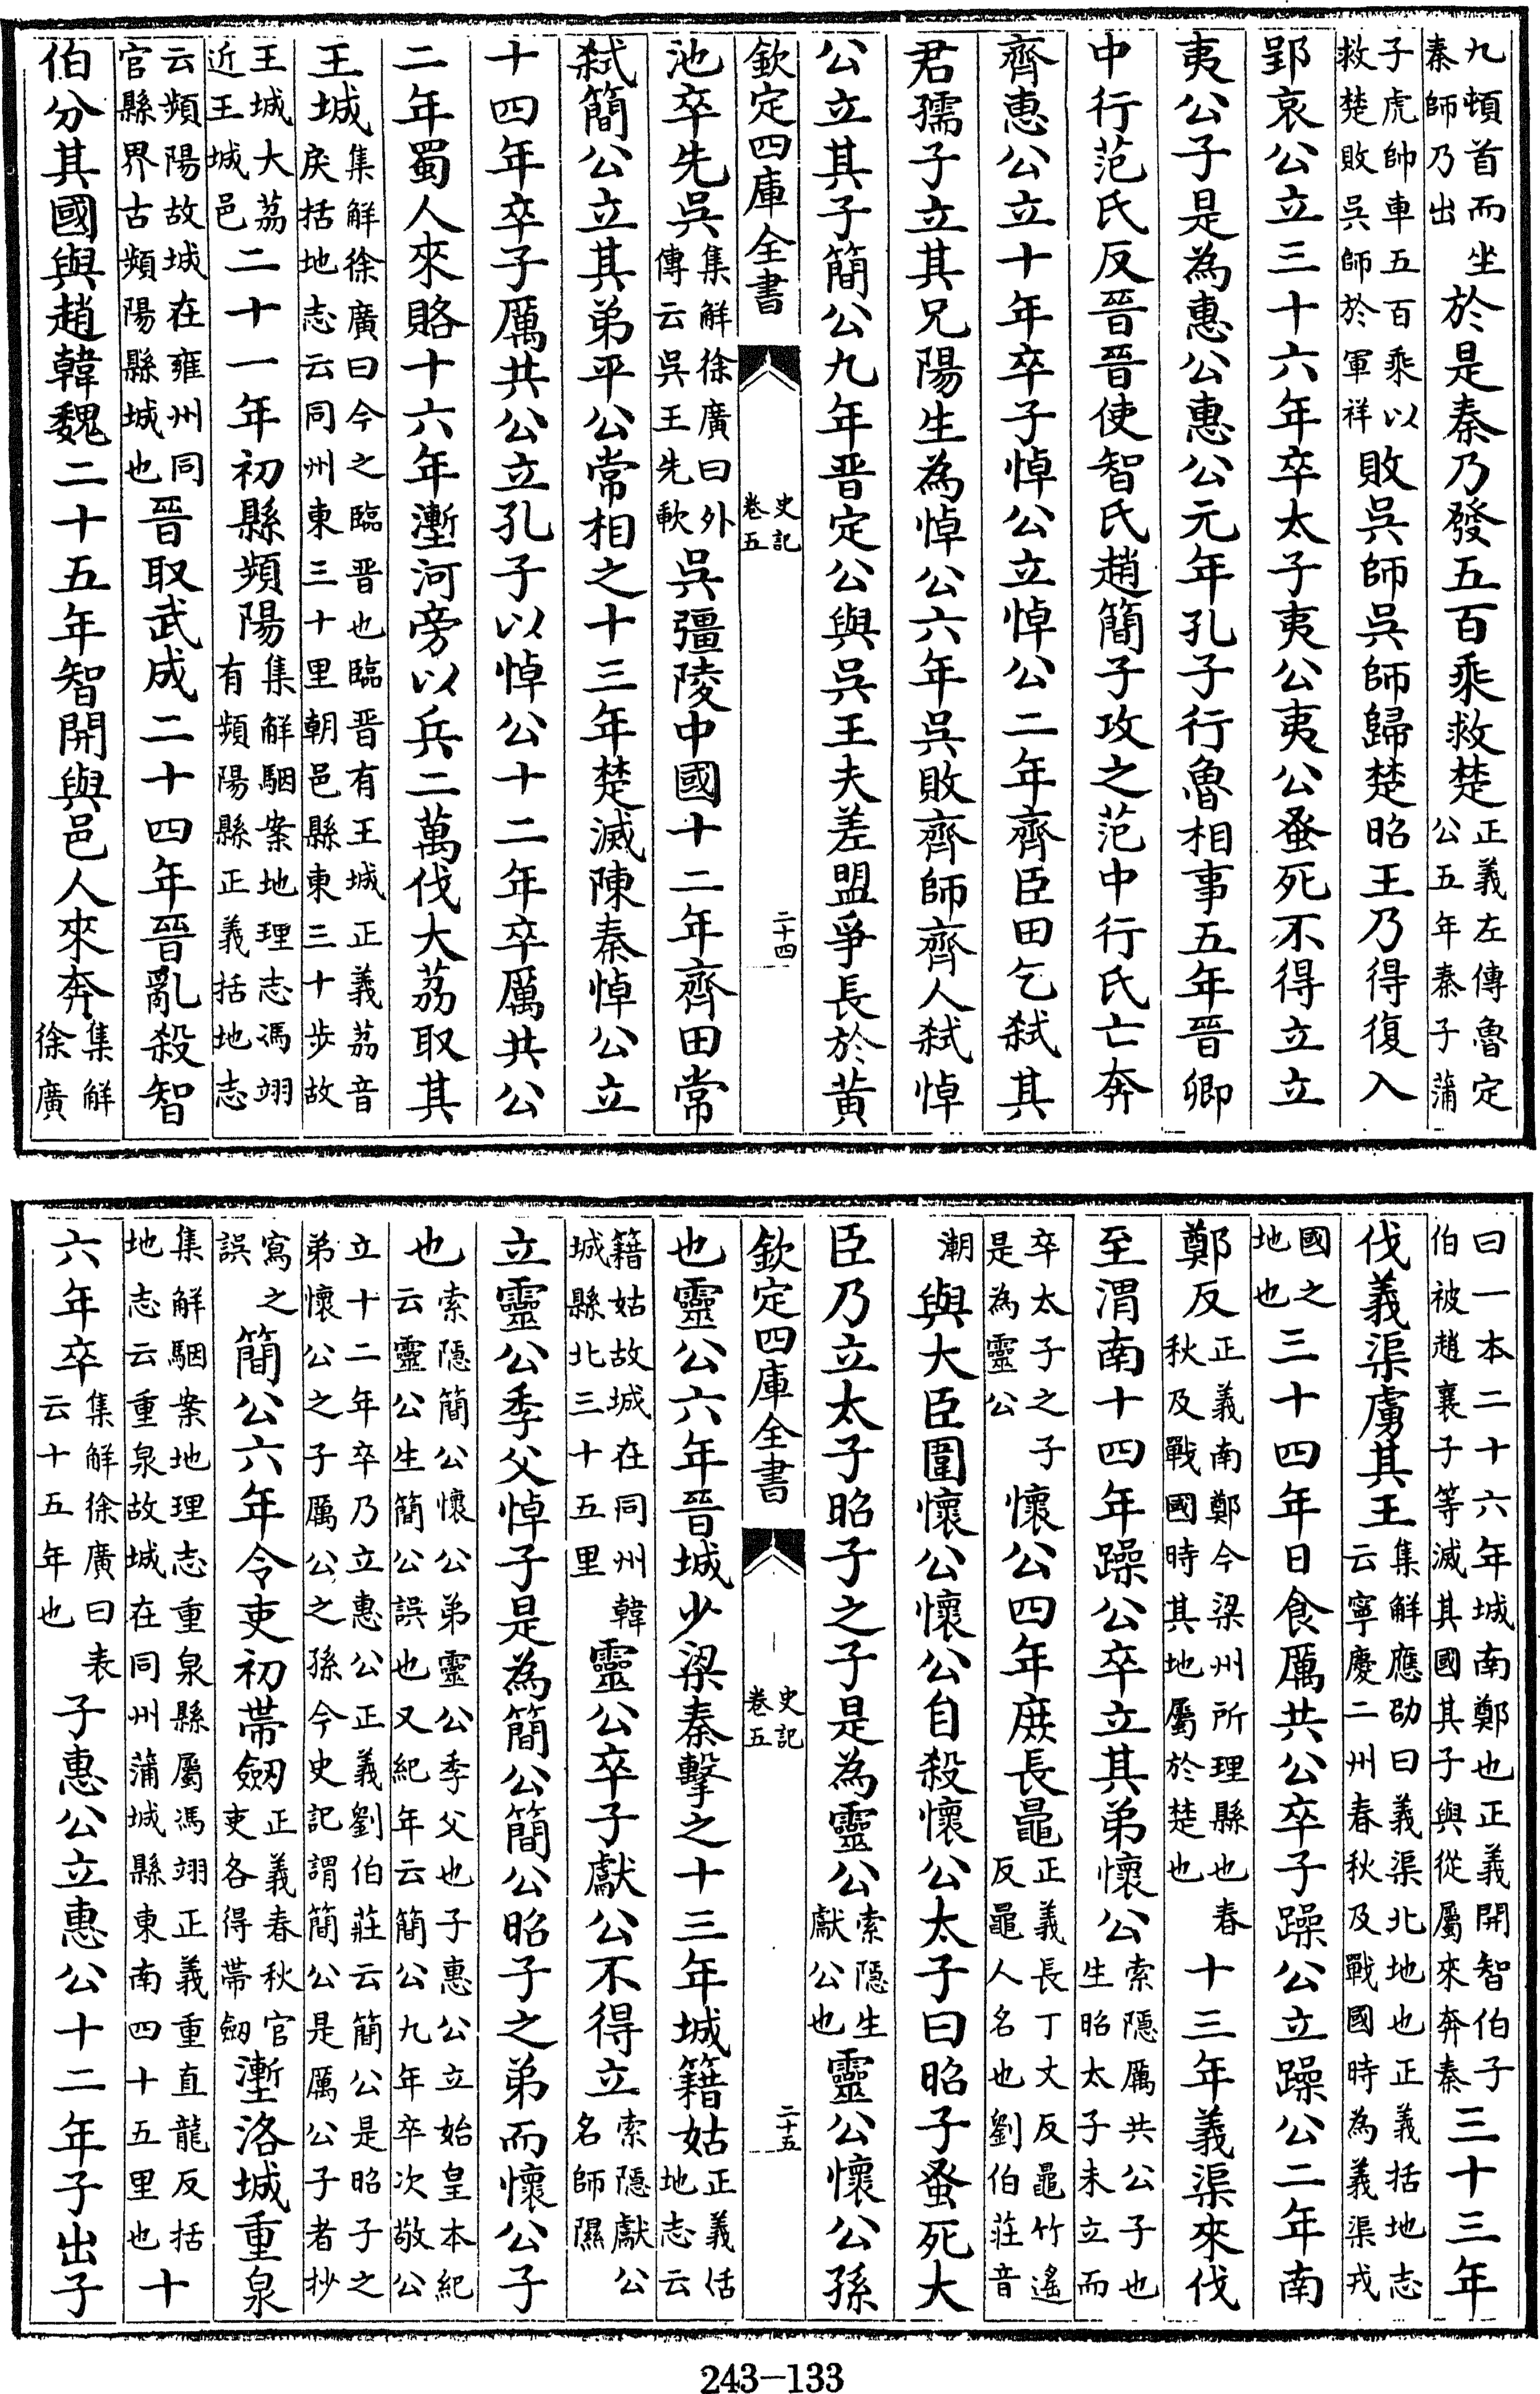 九頓首而坐秦師乃出於是秦乃發五百乘救楚正義左傳魯定公五年秦子蒲
子虎帥車五百乘以救楚敗吳師於軍祥敗吳師吳師歸楚昭王乃得復入
郢哀公立三十六年卒太子夷公夷公蚤死不得立立
夷公子是為惠公惠公元年孔子行魯相事五年晉卿
中行范氏反晉晉使智氏趙簡子攻之范中行氏亡奔
齊惠公立十年卒子悼公立悼公二年齊臣田乞弒其
君孺子立其兄陽生為悼公六年吳敗齊師齊人弒悼
公立其子簡公九年晉定公與吳王夫差盟爭長於黄
欽定四庫全書 史記卷五 二十四
池卒先吳集解徐廣曰外傳云吳王先歃吳彊陵中國十二年齊田常
弒簡公立其弟平公常相之十三年楚滅陳秦悼公立
十四年卒子厲共公立孔子以悼公十二年卒厲共公
二年蜀人來賂十六年塹河旁以兵二萬伐大荔取其
王城集解徐廣曰今之臨晉也臨晉有王城正義荔音戾括地志云同州東三十里朝邑縣東三十步故
王城大荔近王城邑二十一年初縣頻陽集解駰案地理志馮翊有頻陽縣正義括地志
云頻陽故城在雍州同官縣界古頻陽縣城也晉取武成二十四年晉亂殺智
伯分其國與趙韓魏二十五年智開與邑人來奔集解徐廣
曰一本二十六年城南鄭也正義開智伯子伯被趙襄子等滅其國其子與從屬來奔秦三十三年
伐義渠虜其王集解應劭曰義渠北地也正義括地志云寧慶二州春秋及戰國時為義渠戎
國之地也三十四年日食厲共公卒子躁公立躁公二年南
鄭反正義南鄭今梁州所理縣也春秋及戰國時其地屬於楚也十三年義渠來伐
至渭南十四年躁公卒立其弟懷公索隱厲共公子也生昭太子未立而
卒太子之子是為靈公懷公四年庶長鼂正義長丁丈反鼂竹遙反鼂人名也劉伯莊音
潮與大臣圍懷公懷公自殺懷公太子曰昭子蚤死大
臣乃立太子昭子之子是為靈公索隱生獻公也靈公懷公孫
欽定四庫全書 史記卷五 二十五
也靈公六年晉城少梁秦擊之十三年城籍姑正義括地志云
籍姑故城在同州韓城縣北三十五里靈公卒子獻公不得立索隱獻公名師隰
立靈公季父悼子是為簡公簡公昭子之弟而懷公子
也索隱簡公懷公弟靈公季父也子惠公立始皇本紀云靈公生簡公誤也又紀年云簡公九年卒次敬公
立十二年卒乃立惠公正義劉伯莊云簡公是昭子之弟懷公之子厲公之孫今史記謂簡公是厲公子者抄
寫之誤簡公六年令吏初帶劒正義春秋官吏各得帶劒塹洛城重泉
集解駰案地理志重泉縣屬馮翊正義重直龍反括地志云重泉故城在同州蒲城縣東南四十五里也十
六年卒集解徐廣曰表云十五年也子惠公立惠公十二年子出子
243-133